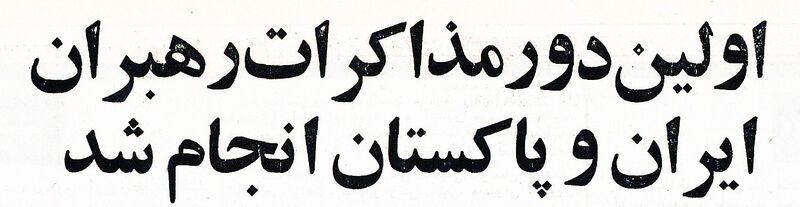 اولین دور مذاکرات رهبران
ایران و پاکستان انجام شد